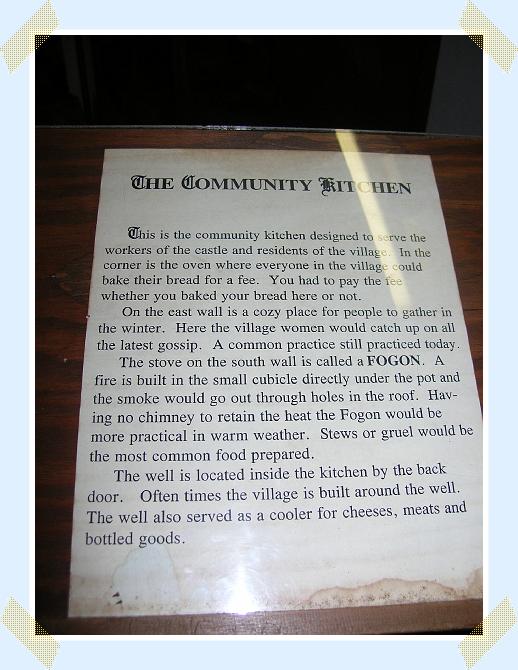 THE COMMUNITY KITCHEN
This is the community kitchen designed to serve the
workers of the castle and residents of the village. In the
corner is the oven where everyone in the village could
bake their bread for a fee. You had to pay the fee
whether you baked your bread here or not.
On the east wall is a cozy place for people to gather in
the winter. Here the village women would catch up on all
the latest gossip. A common practice still practiced today.
The stove on the south wall is called a FOGON. A
fire is built in the small cubicle directly under the pot and
the smoke would go out through holes in the roof. Hav-
ing no chimney to retain the heat the Fogon would be
more practical in warm weather. Stews or gruel would be
the most common food prepared.
The well is located inside the kitchen by the back
door. Often times the village is built around the well.
The well also served as a cooler for cheeses, meats and
bottled goods.